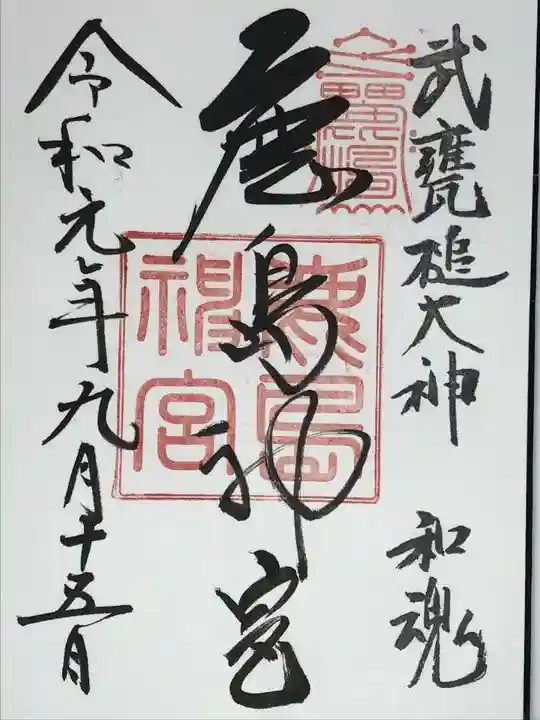 武甕槌大神 和魂
鹿島神宮
鹿島神宮
令和元年九月十五日